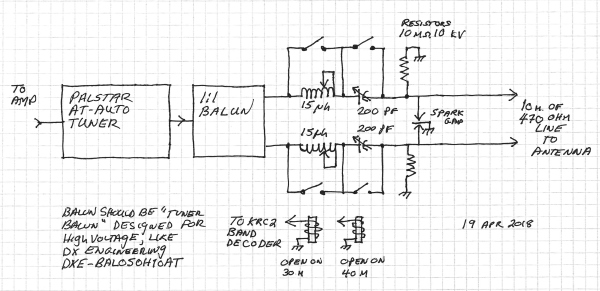 RESISTORS
10 MΩ 10 KV
TO
AMP
PALSTAR
AT-AUTO
TUNER
1:1
BALUN
15μh
200 PF
200 PF
15μh
SPARK
GAP
1CH. OF
420 OHM
LINE
TO
ANTENNA
BALUN SHOULD BE "TUNER
BALUN" DESIGNED FOR
HIGH VOLTAGE, LIKE
DX ENGINEERING
DXE-BAL050H10AT
TO KRC2
BAND
DECODER
OPEN ON
30 M
OPEN ON
40 M
19 APR 2018